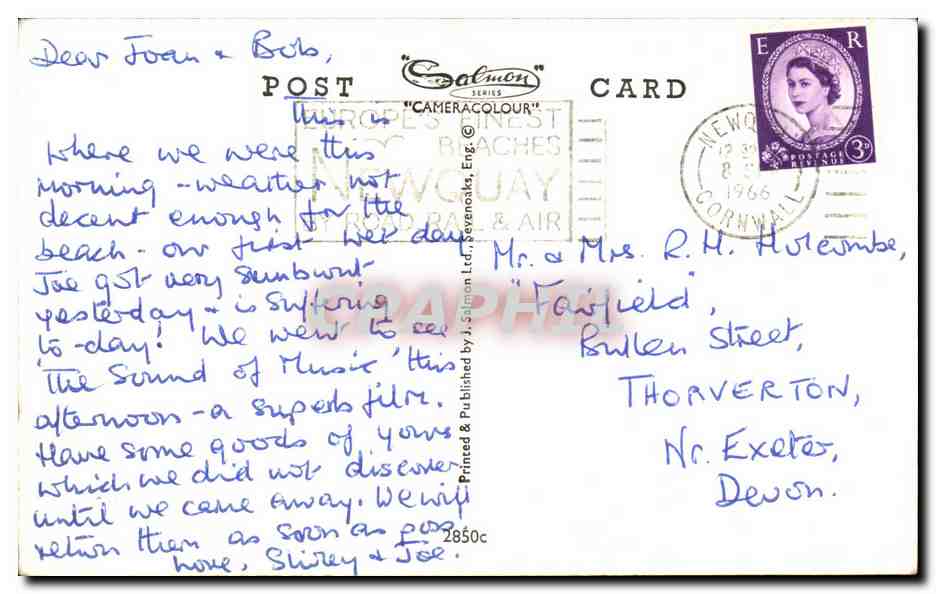 Dear Joan & Bob,
POST
"Salmon"
SERIES
"CAMERACOLOUR"
CARD
E R
POSTAGE
REVENUE
3D
EUROPE'S FINEST
BEACHES
NEWQUAY
BY ROAD RAIL & AIR
NEWQU
1966
CORNWALL
This is
where we were this
morning - weather not
decent enough for the
beach - our first wet day
Joe got very sunburnt
yesterday & is suffering
to-day! We went to see
'The Sound of Music' this
afternoon - a superb film.
Have some goods of yours
which we did not discover
until we came away. We will
return them as soon as poss
Love, Shirley & Joe.
Printed & Published by J. Salmon Ltd., Sevenoaks, Eng. ©
2850c
Mr. & Mrs. R. H. Holcombe,
"Fairfield",
Bullen Street,
THORVERTON,
Nr. Exeter,
Devon.
CPAPHIL